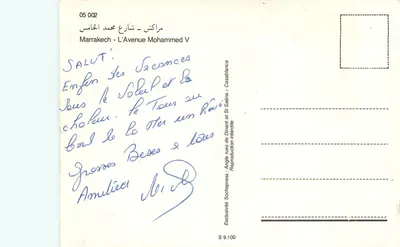 05 002
مراكش - شارع محمد الخامس
Marrakech - L'Avenue Mohammed V
SALUT!
Enfin des vacances
sous le soleil et la
chaleur. Le Tous au
bord de la Mer un
Grosses Bises à tous
Exclusivité Sochepress - Angle rues de Dinant et St Saëns - Casablanca
Reproduction interdite
S 9.100